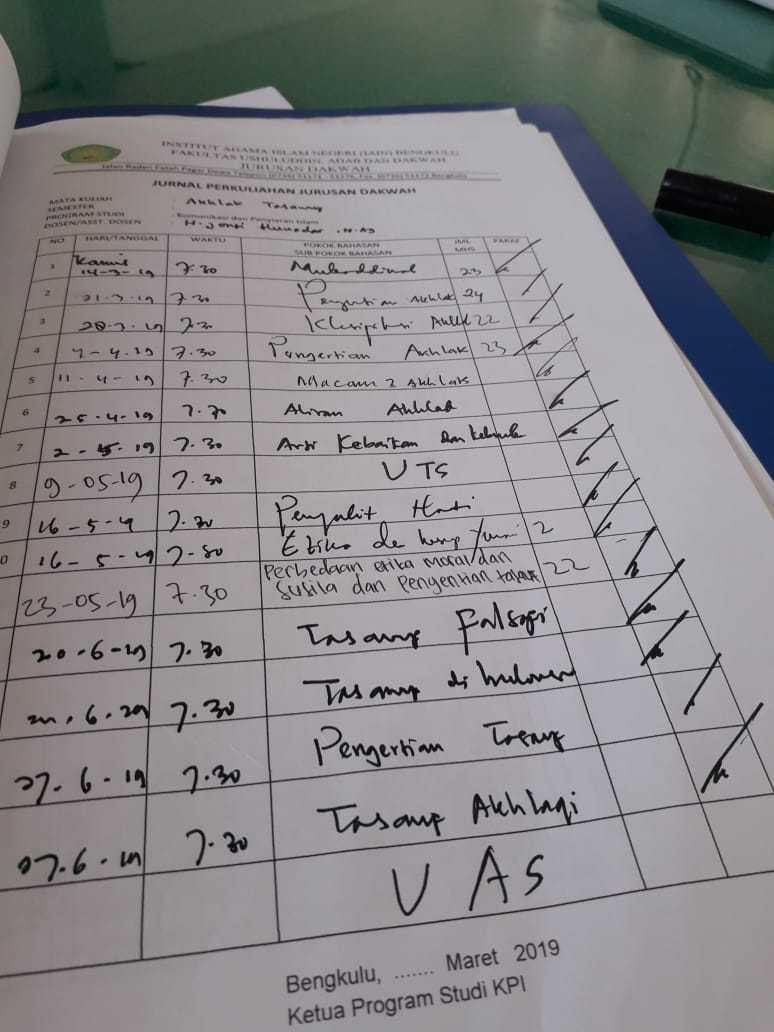 INSTITUT AGAMA ISLAM NEGERI (IAIN) BENGKULU
FAKULTAS USHULUDDIN, ADAB DAN DAKWAH
JURUSAN DAKWAH
Jalan Raden Fatah Pagar Dewa
JURNAL PERKULIAHAN JURUSAN DAKWAH
MATA KULIAH : Akhlak Tasawuf
SEMESTER
PROGRAM STUDI : Komunikasi dan Penyiaran Islam
DOSEN/ASST. DOSEN : H. Joni
NO HARI/TANGGAL WAKTU POKOK BAHASAN SUB POKOK BAHASAN JML MHS PARAF
1 Kamis 14-3-19 7.30 23
2 21-3-19 7.30 Pengertian Akhlak 24
3 7.30 22
4 4-4-19 7.30 Pengertian Akhlak 23
5 11-4-19 7.30 Macam2 Akhlak
6 25-4-19 7.30 Aliran
7 2-5-19 7.30 Arti Kebaikan dan
8 9-05-19 7.30 UTS
9 16-5-19 7.30 Penyakit Hati
0 16-5-19 Etika 2
23-05-19 7.30 Perbedaan etika moral dan
susila dan Pengertian 22
20.6-19 7.30 Tasauf Falsafi
7.30 Tasauf di
27.6-19 7.30 Pengertian
27.6.19 7.30 Tasauf Akhlaqi
UAS
Bengkulu, ....... Maret 2019
Ketua Program Studi KPI